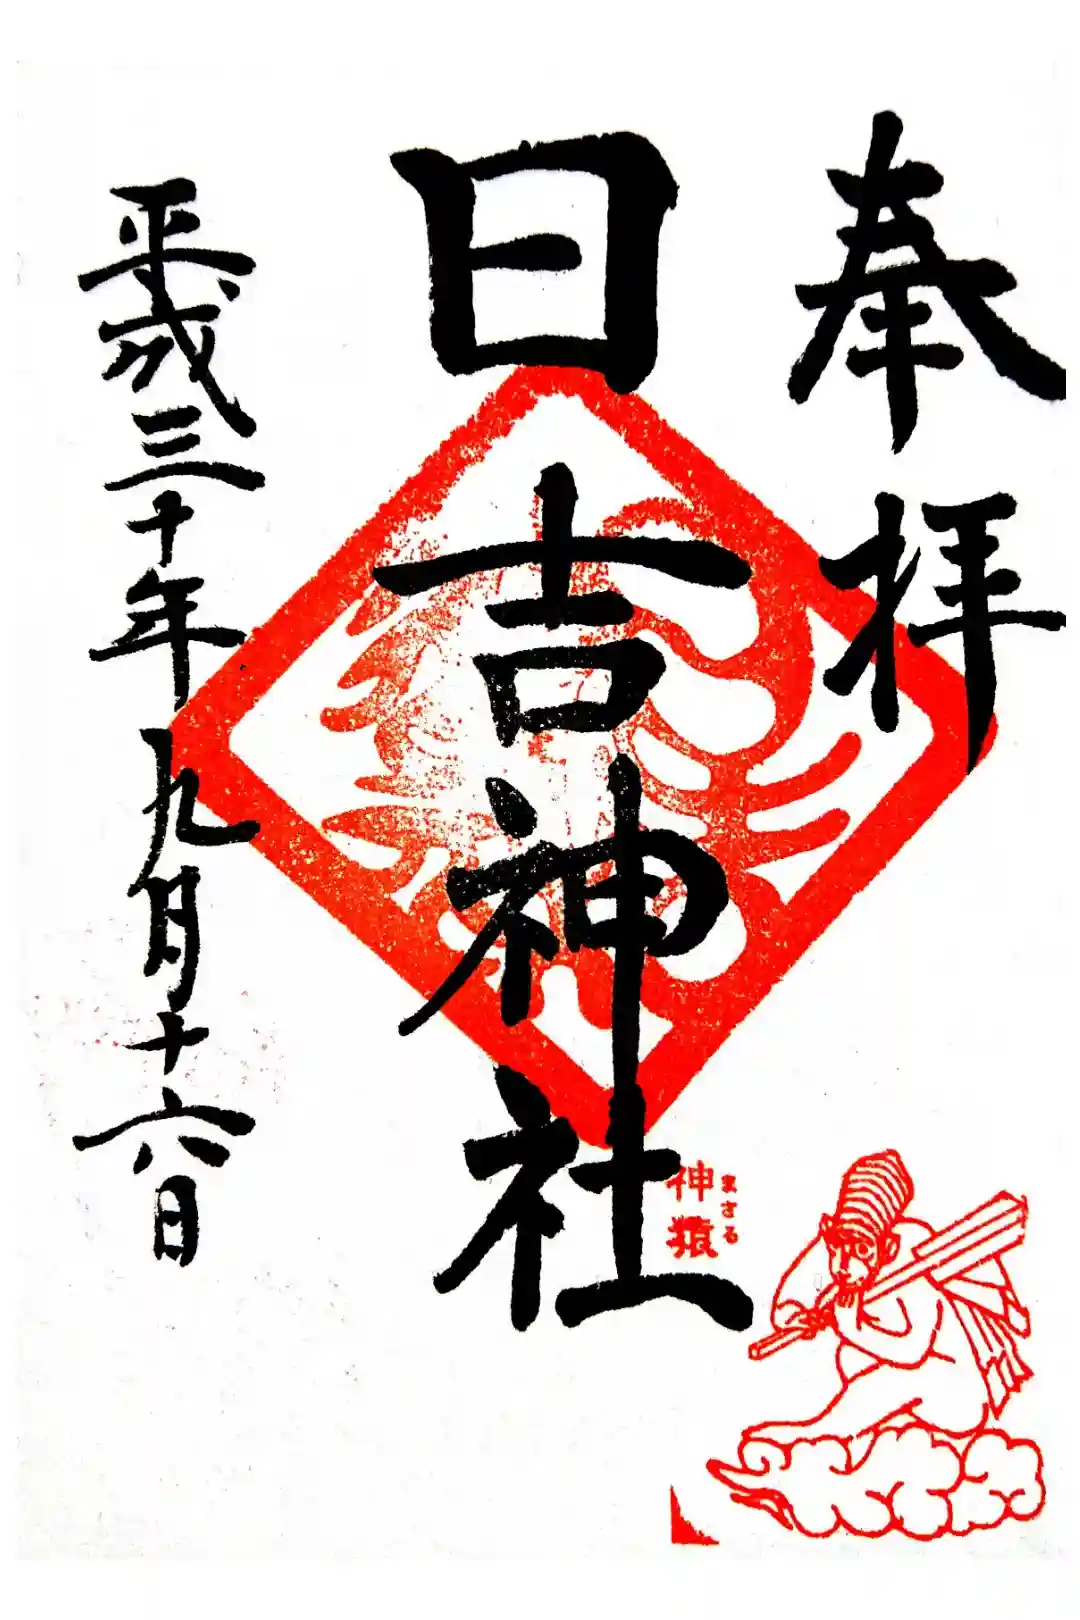 奉拝
日吉神社
平成三十年九月十六日
まさる
神猿